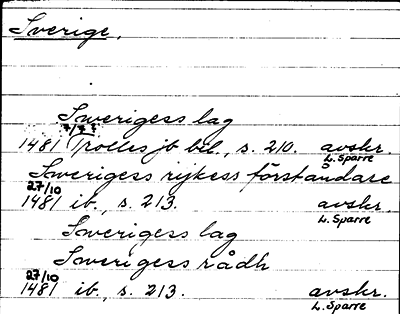 Sverige.
Swerigess lag
7/7 ?
1481 Trolles jb bil., s. 210. avskr.
L. Sparre
Swerigess rijkess förstandare
27/10
1481 ib., s. 213. avskr.
L. Sparre
Swerigess lag
Swerigess rådh
27/10
1481 ib., s. 213. avskr.
L. Sparre